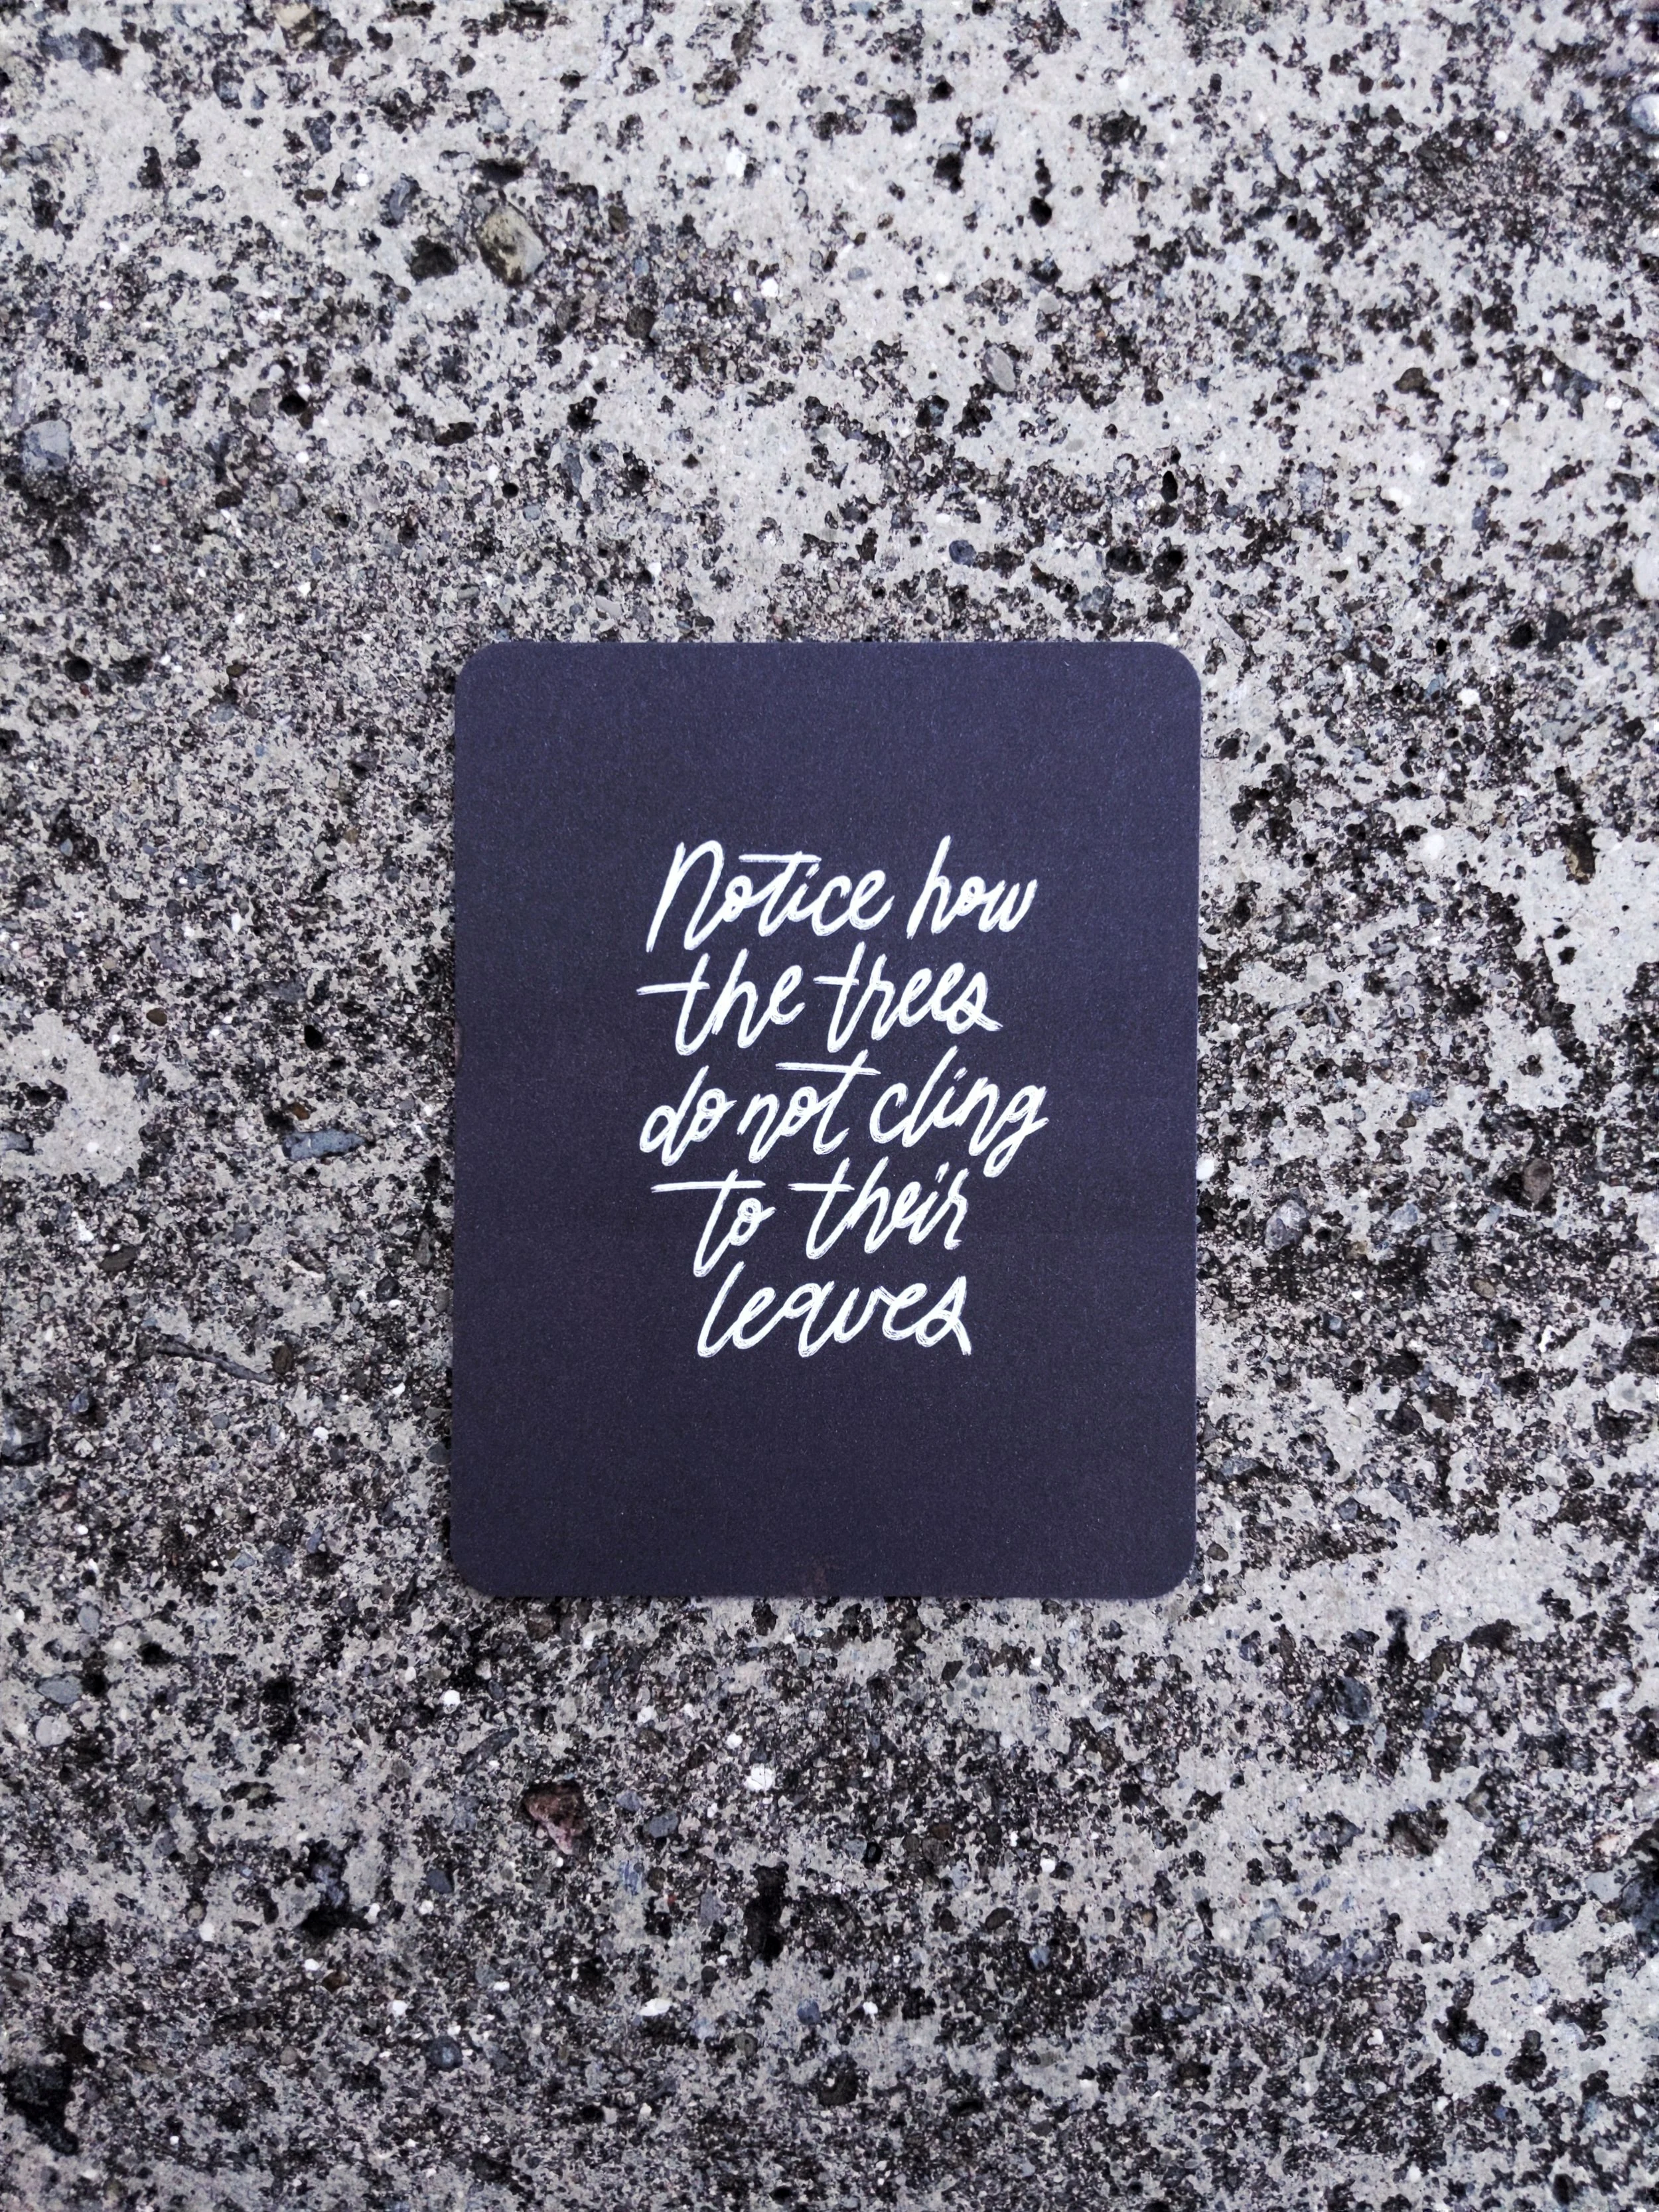 Notice how
the trees
do not cling
to their
leaves